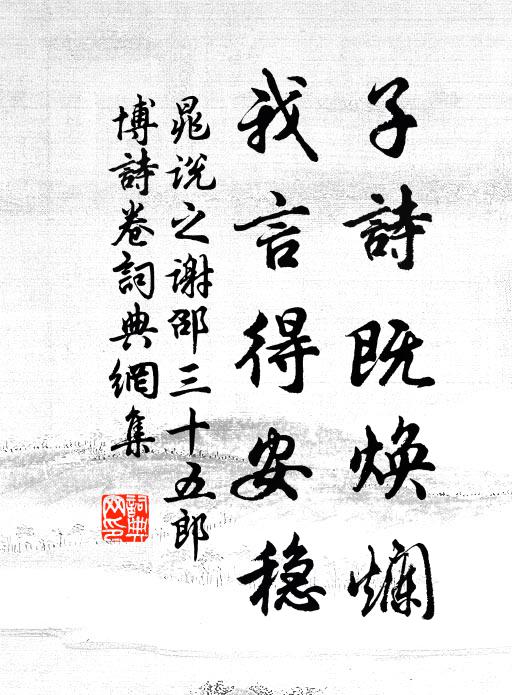 子詩既煥爛
我言得安穏
晁说之谢邵三十五郎
博詩卷詞典網集
詞典
网印